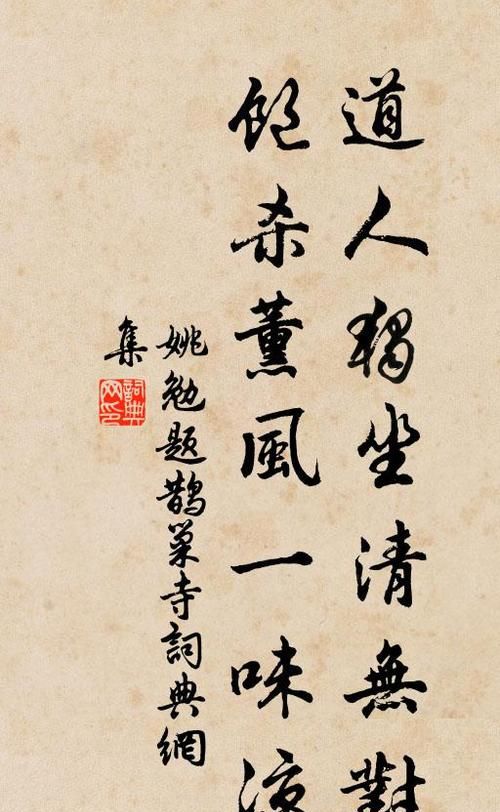 道人獨坐清無對
飽杀薰風一味涼
姚勉題鵲巢寺詞典網
集
詞典
网印